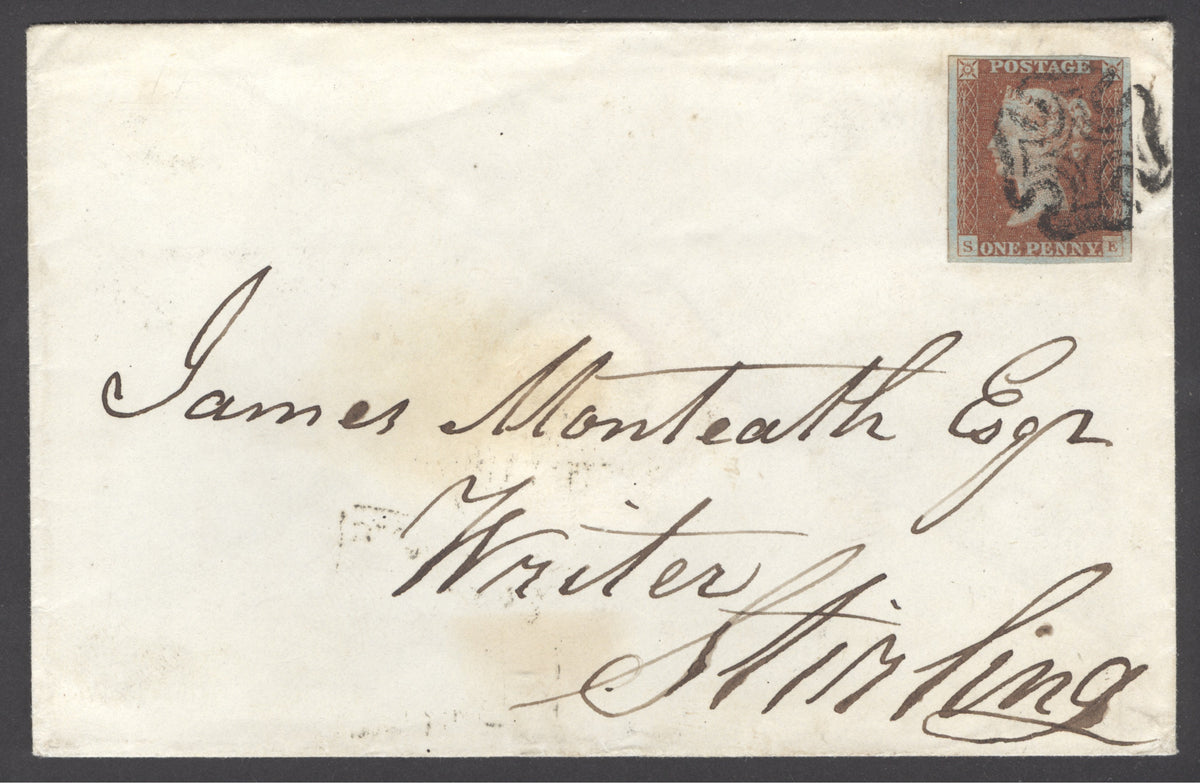 POSTAGE
S ONE PENNY. E
James Monteath Esqr
Writer
Stirling